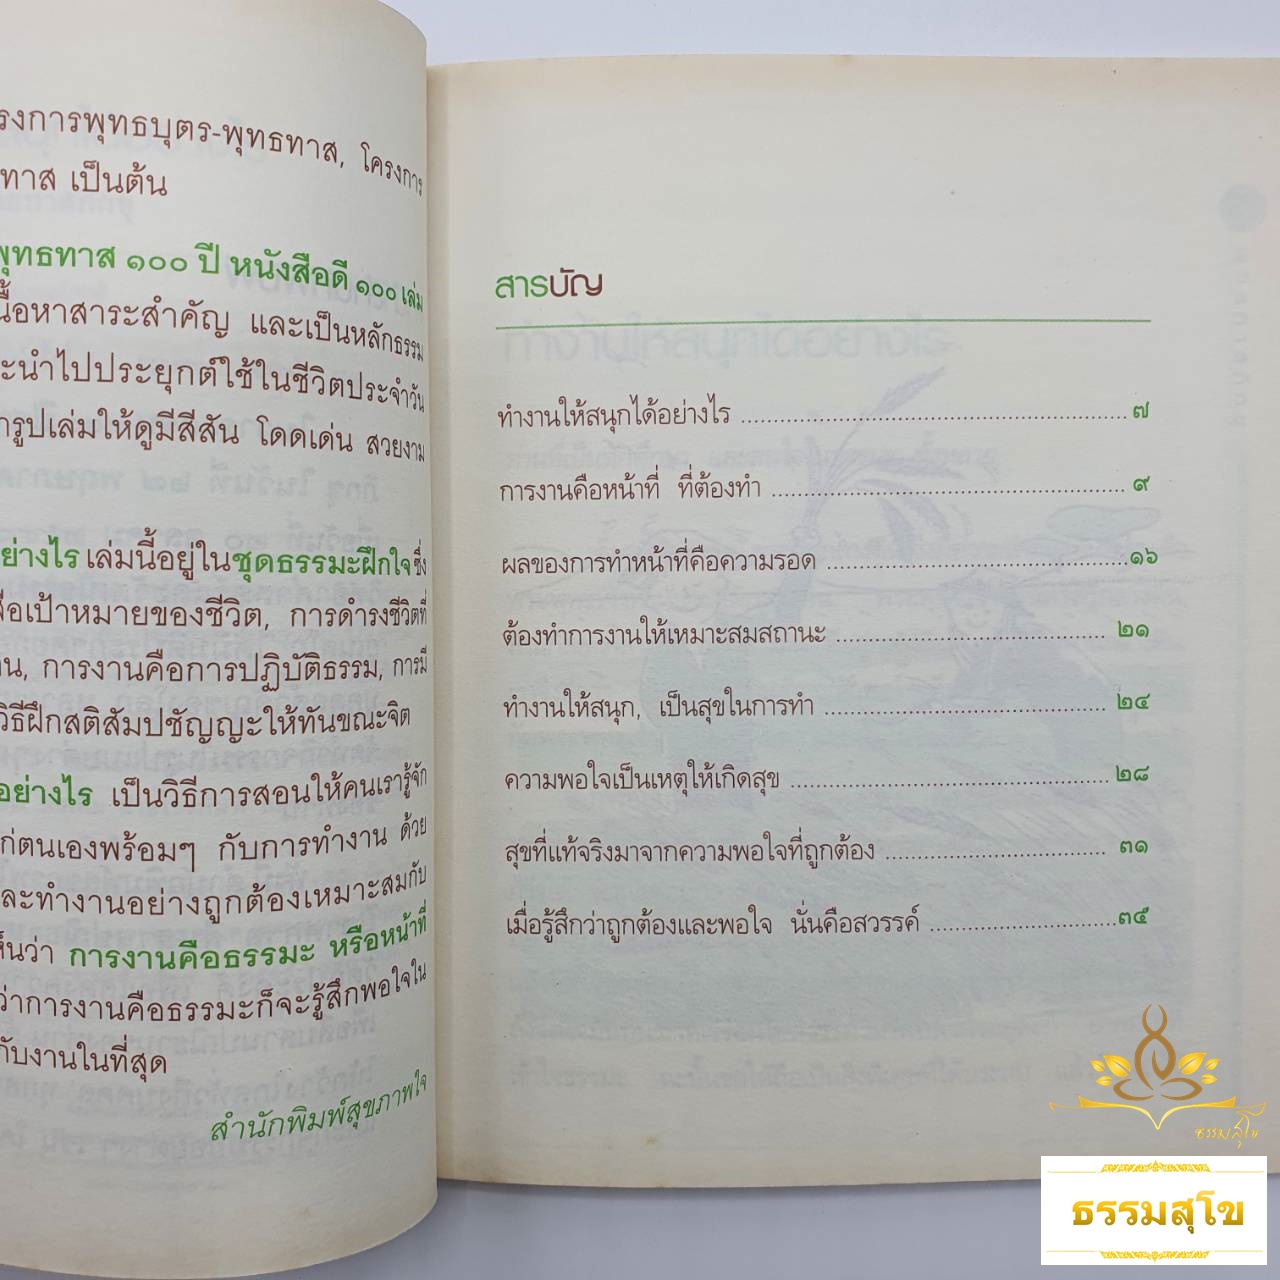 รงการพุทธบุตร-พุทธทาส, โครงการ
ทาส เป็นต้น
พุทธทาส ๑๐๐ ปี หนังสือดี ๑๐๐ เล่ม
นื้อหาสาระสำคัญ และเป็นหลักธรรม
ะนำไปประยุกต์ใช้ในชีวิตประจำวัน
รูปเล่มให้ดูมีสีสัน โดดเด่น สวยงาม
ย่างไร เล่มนี้อยู่ในชุดธรรมะฝึกใจ ซึ่ง
อเป้าหมายของชีวิต, การดำรงชีวิตที่
น, การงานคือการปฏิบัติธรรม, การมี
วิธีฝึกสติสัมปชัญญะให้ทันขณะจิต
อย่างไร เป็นวิธีการสอนให้คนเรารู้จัก
ก่ตนเองพร้อมๆ กับการทำงาน ด้วย
ละทำงานอย่างถูกต้องเหมาะสมกับ
ห็นว่า การงานคือธรรมะ หรือหน้าที่
ว่าการงานคือธรรมะก็จะรู้สึกพอใจใน
กับงานในที่สุด
สำนักพิมพ์สุขภาพใจ
สารบัญ
ทำงานให้สนุกได้อย่างไร ๗
การงานคือหน้าที่ ที่ต้องทำ ๙
ผลของการทำหน้าที่คือความรอด ๑๖
ต้องทำการงานให้เหมาะสมสถานะ ๒๑
ทำงานให้สนุก, เป็นสุขในการทำ ๒๔
ความพอใจเป็นเหตุให้เกิดสุข ๒๘
สุขที่แท้จริงมาจากความพอใจที่ถูกต้อง ๓๑
เมื่อรู้สึกว่าถูกต้องและพอใจ นั่นคือสวรรค์ ๓๕
ธรรมสุโข
ธรรมสุโข